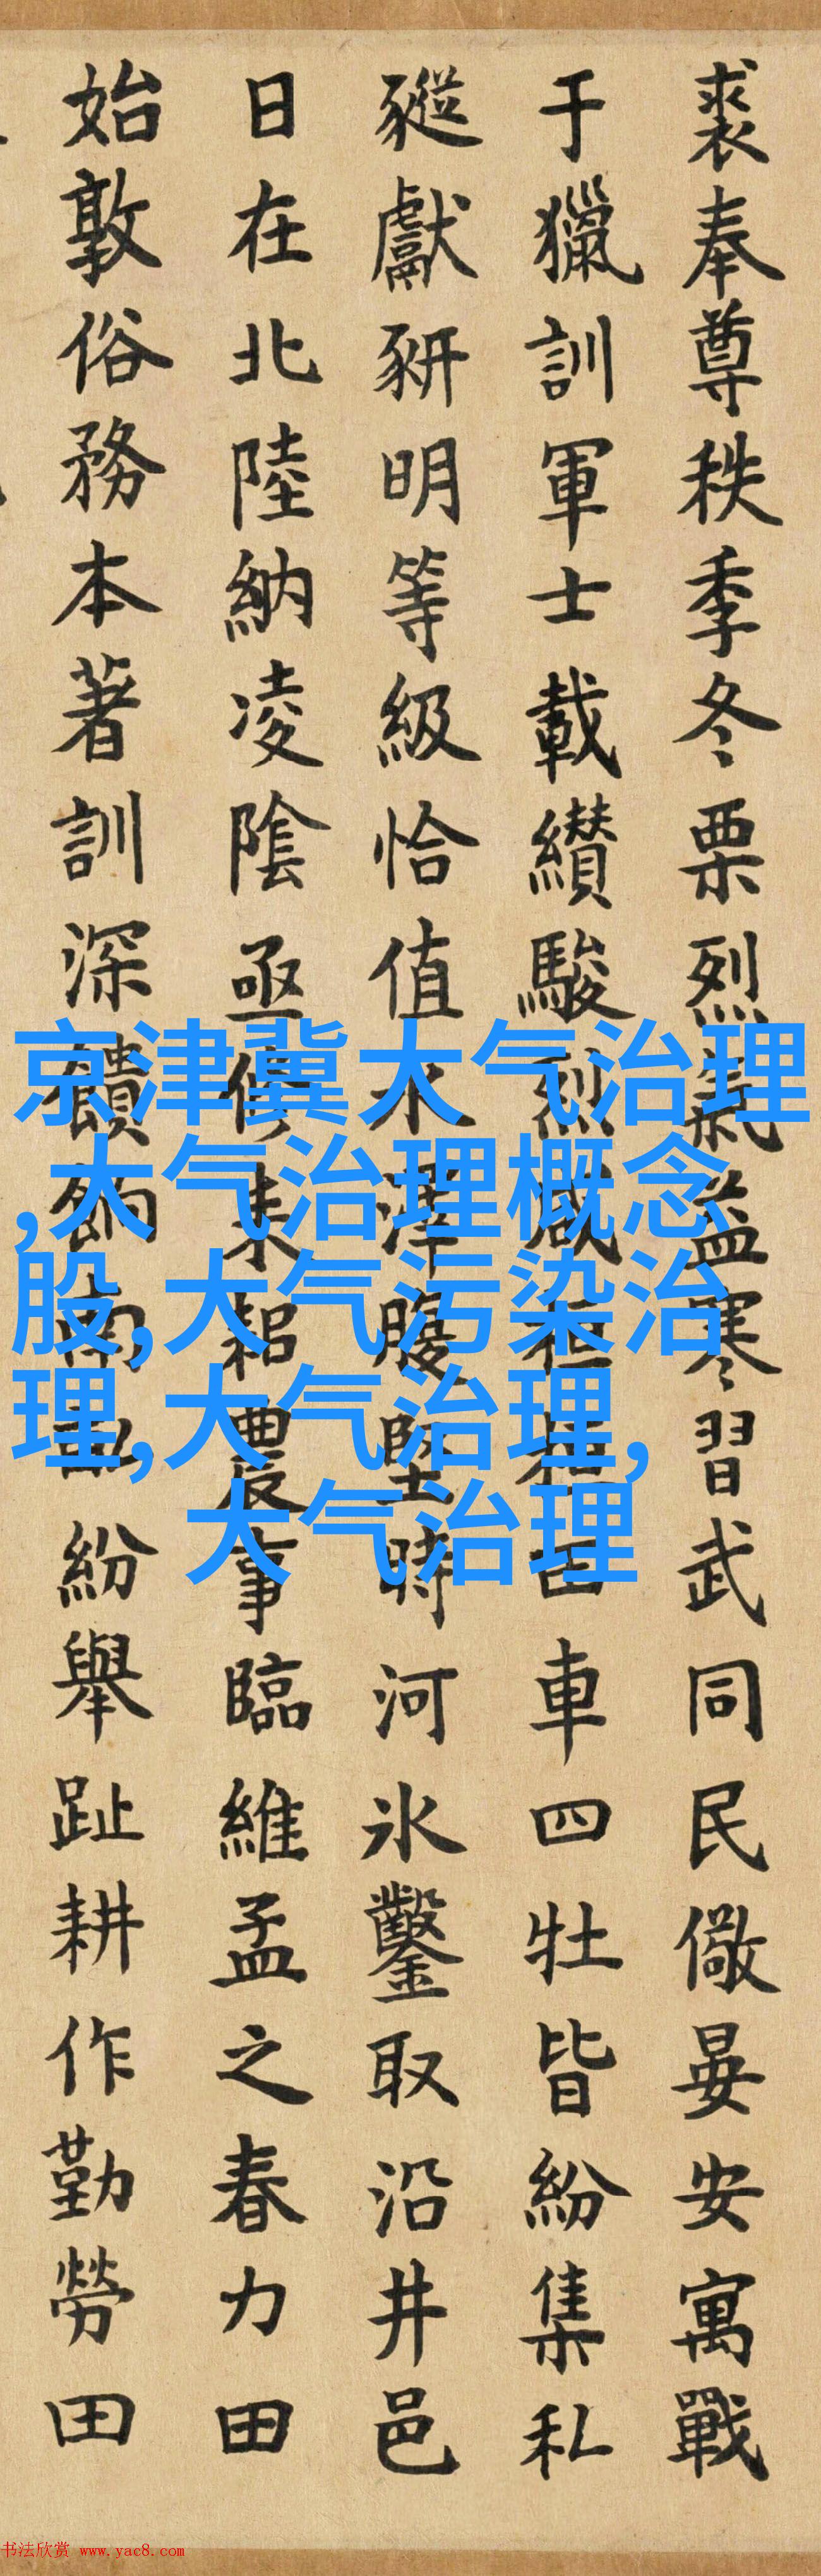 裘奉尊秩季冬栗烈氣益寒習武同民儆晏安寓戰
于獵訓軍士載纘駿烈威桓桓四車四牡皆紛集私
豵獻豜明等級恰值水澤腹堅時河冰鑿取沿井邑
日在北陸納凌陰亟修耒耜農事臨維孟之春力田
始敦俗務本著訓深饋餉南畝紛舉趾耕作勤勞田
京津冀大气治理
,大气治理概念
股,大气污染治
理,大气治理,
大气治理
书法欣赏 www.yac8.com